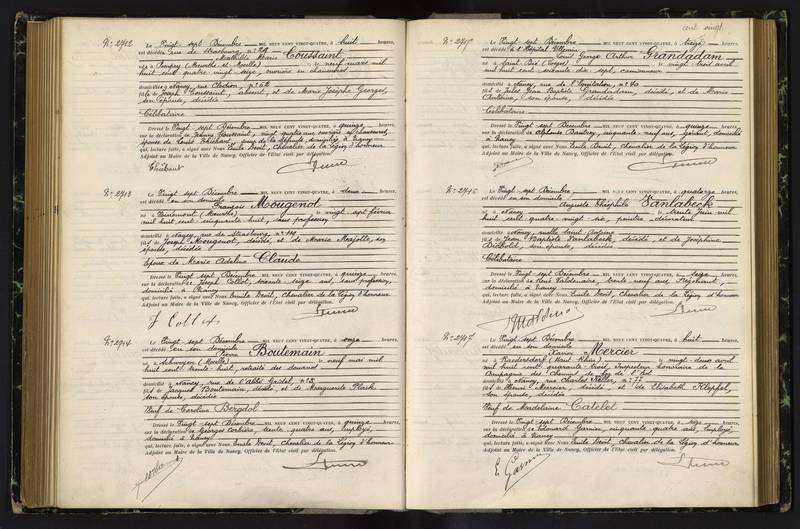 N° 2912
Le Vingt-sept Décembre MIL NEUF CENT VINGT-QUATRE, à huit heures,
est décédée rue de Strasbourg, n°
Mathilde Marie Coussaint
née à Pompey (Meurthe et Moselle) le neuf mars mil
huit cent quatre vingt seize, ouvrière en chaussures
domiciliée à Nancy, rue
fille de Joseph Coussaint, absent, et de Marie Josèphe Georges,
son épouse, décédée
Célibataire
Dressé le Vingt-sept Décembre MIL NEUF CENT VINGT-QUATRE, à quinze heures,
sur la déclaration de Jeanne Coussaint, vingt quatre ans, ouvrière en chaussures,
épouse de Louis Thiébaut, sœur de la défunte, domiciliée à Nancy
qui, lecture faite, a signé avec Nous Emile Devit, Chevalier de la Légion d'honneur
Adjoint au Maire de la Ville de Nancy, Officier de l'Etat civil par délégation.
Thiébaut
N° 2913
Le Vingt-sept Décembre MIL NEUF CENT VINGT-QUATRE, à deux heures,
est décédé en son domicile
François Mougenot
né à (Meurthe) le vingt sept février
mil huit cent cinquante huit, sans profession
domicilié à Nancy, rue de Strasbourg, n°
fils de Joseph Mougenot, décédé, et de Marie Marjotte, son
épouse, décédée
Epoux de Marie Adeline Claude
Dressé le Vingt-sept Décembre MIL NEUF CENT VINGT-QUATRE, à quinze heures,
sur la déclaration de Joseph Collot, soixante seize ans, sans profession,
domicilié à Nancy
qui, lecture faite, a signé avec Nous Emile Devit, Chevalier de la Légion d'honneur
Adjoint au Maire de la Ville de Nancy, Officier de l'Etat civil par délégation.
J Collot
N° 2914
Le Vingt-sept Décembre MIL NEUF CENT VINGT-QUATRE, à onze heures,
est décédé en son domicile
Pierre Boulemain
né à (Moselle) le neuf mai mil
huit cent trente huit, retraité des douanes
domicilié à Nancy, rue de l'abbé Gridel, n°
fils de Jacques Boulemain, décédé, et de Marguerite
son épouse, décédée
Veuf de Caroline Bergdol
Dressé le Vingt-sept Décembre MIL NEUF CENT VINGT-QUATRE, à quinze heures,
sur la déclaration de Georges Corbière, trente quatre ans, employé,
domicilié à Nancy
qui, lecture faite, a signé avec Nous Emile Devit, Chevalier de la Légion d'honneur
Adjoint au Maire de la Ville de Nancy, Officier de l'Etat civil par délégation.
cent vingt
N° 2915
Le Vingt-sept Décembre MIL NEUF CENT VINGT-QUATRE, à treize heures,
est décédé à l'Hôpital Villemin
Louis George Arthur Grandadam
né à Saint Dié (Vosges) le vingt trois avril
mil huit cent soixante dix sept, camionneur
domicilié à Nancy, rue de l'Hospitalier, n°
fils de Jules Jean Baptiste Grandadam, décédé, et de Marie
Antoine, son épouse, décédée
Célibataire
Dressé le Vingt-sept Décembre MIL NEUF CENT VINGT-QUATRE, à quinze heures,
sur la déclaration de Alphonse Bautrey, cinquante neuf ans, gérant, domicilié
à Nancy
qui, lecture faite, a signé avec Nous Emile Devit, Chevalier de la Légion d'honneur
Adjoint au Maire de la Ville de Nancy, Officier de l'Etat civil par délégation.
N° 2916
Le Vingt-sept Décembre MIL NEUF CENT VINGT-QUATRE, à quatorze heures,
est décédé en son domicile
Auguste Théophile Vanlabeck
né à Nancy le trente Juin mil
huit cent quatre vingt six, peintre décorateur
domicilié à Nancy, ruelle Saint Antoine
fils de Jean Baptiste Vanlabeck, décédé, et de Joséphine
son épouse, décédée
Célibataire
Dressé le Vingt-sept Décembre MIL NEUF CENT VINGT-QUATRE, à seize heures,
sur la déclaration de René Valdenaire, trente neuf ans, Négociant,
domicilié à Nancy
qui, lecture faite, a signé avec Nous Emile Devit, Chevalier de la Légion d'honneur
Adjoint au Maire de la Ville de Nancy, Officier de l'Etat civil par délégation.
N° 2917
Le Vingt-sept Décembre MIL NEUF CENT VINGT-QUATRE, à huit heures,
est décédé en son domicile
Xavier Mercier
né à Raedersdorf (Haut Rhin) le vingt deux avril
mil huit cent quarante trois, Inspecteur honoraire de la
Compagnie des Chemins de fer de l'Est
domicilié à Nancy, rue Charles Keller, n° 77
fils de Henri Mercier, décédé, et de Elisabeth
son épouse, décédée
Veuf de Madeleine Catelet
Dressé le Vingt-sept Décembre MIL NEUF CENT VINGT-QUATRE, à seize heures,
sur la déclaration de Edouard Garnier, cinquante quatre ans, Employé,
domicilié à Nancy
qui, lecture faite, a signé avec Nous Emile Devit, Chevalier de la Légion d'honneur
Adjoint au Maire de la Ville de Nancy, Officier de l'Etat civil par délégation.
E. Garnier